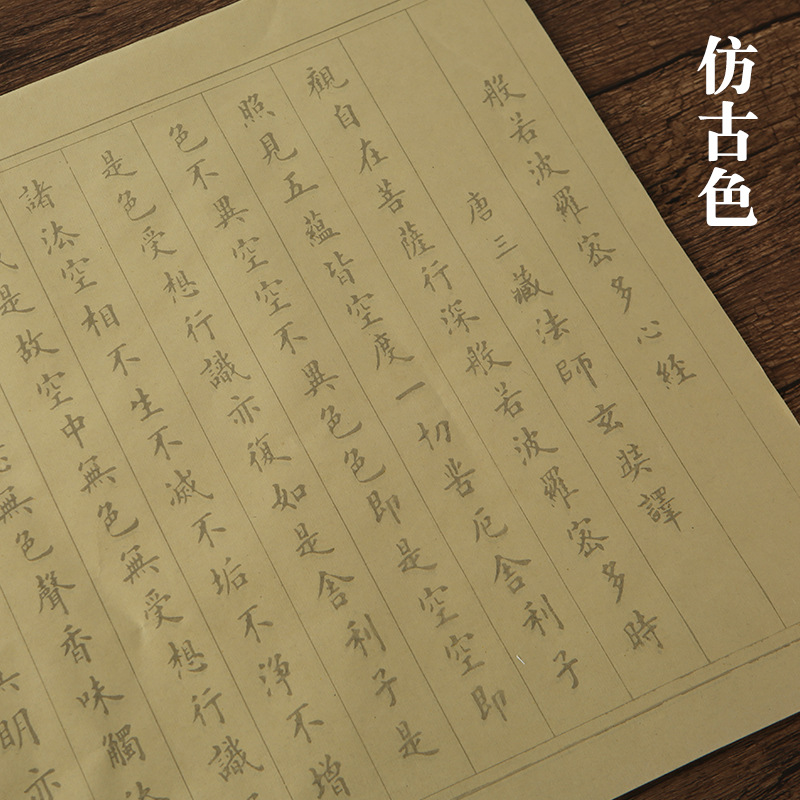 仿古色
般若波羅密多心經
唐三藏法師玄奘譯
觀自在菩薩行深般若波羅密多時
照見五蘊皆空度一切苦厄舍利子
色不異空空不異色色即是空空即
是色受想行識亦復如是舍利子是
諸法空相不生不滅不垢不淨不增
是故空中無色無受想行識
無色聲香味觸法
明亦